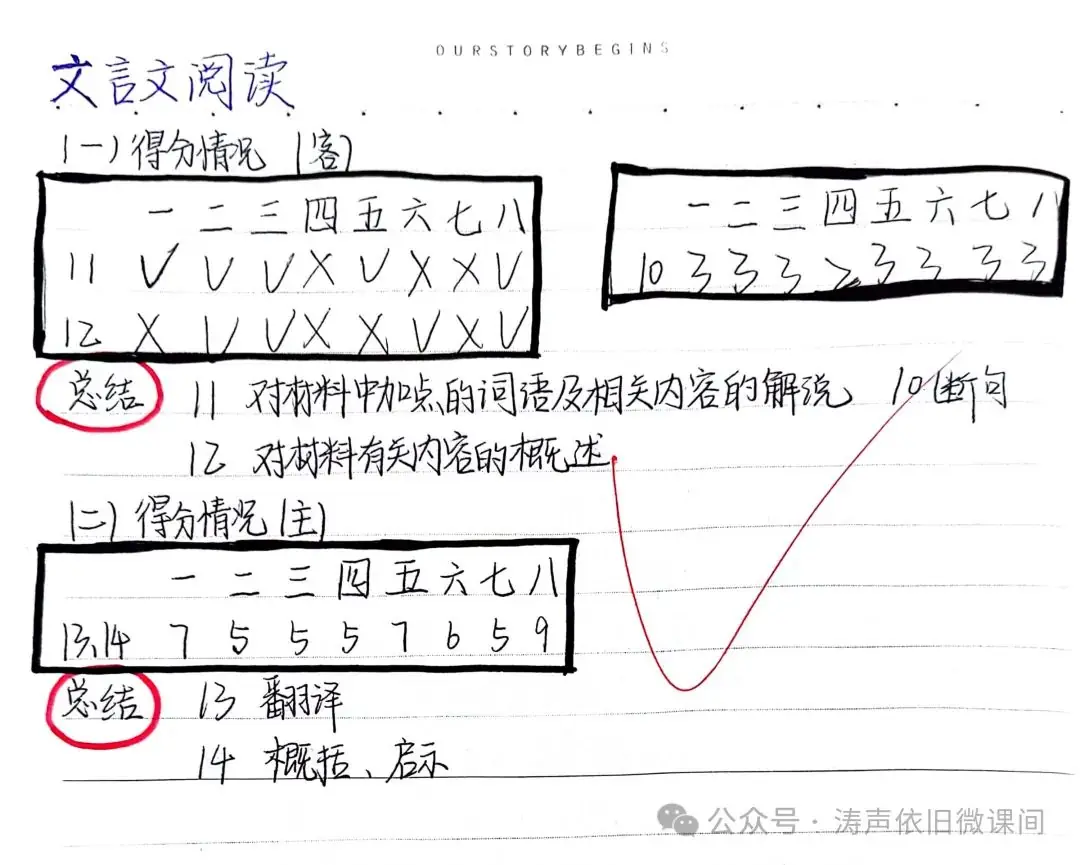 OURSTORYBEGINS
文言文阅读
(一)得分情况 (客)
一 二 三 四 五 六 七 八
11 √ √ √ X √ X X √
12 X √ √ X X √ X √
一 二 三 四 五 六 七 八
10 3 3 3 2 3 3 3 3
总结 11 对材料中加点的词语及相关内容的解说 10 断句
12 对材料有关内容的概述
(二)得分情况(主)
一 二 三 四 五 六 七 八
13、14 7 5 5 5 7 6 5 9
总结 13 翻译
14 概括、启示
公众号·涛声依旧微课间